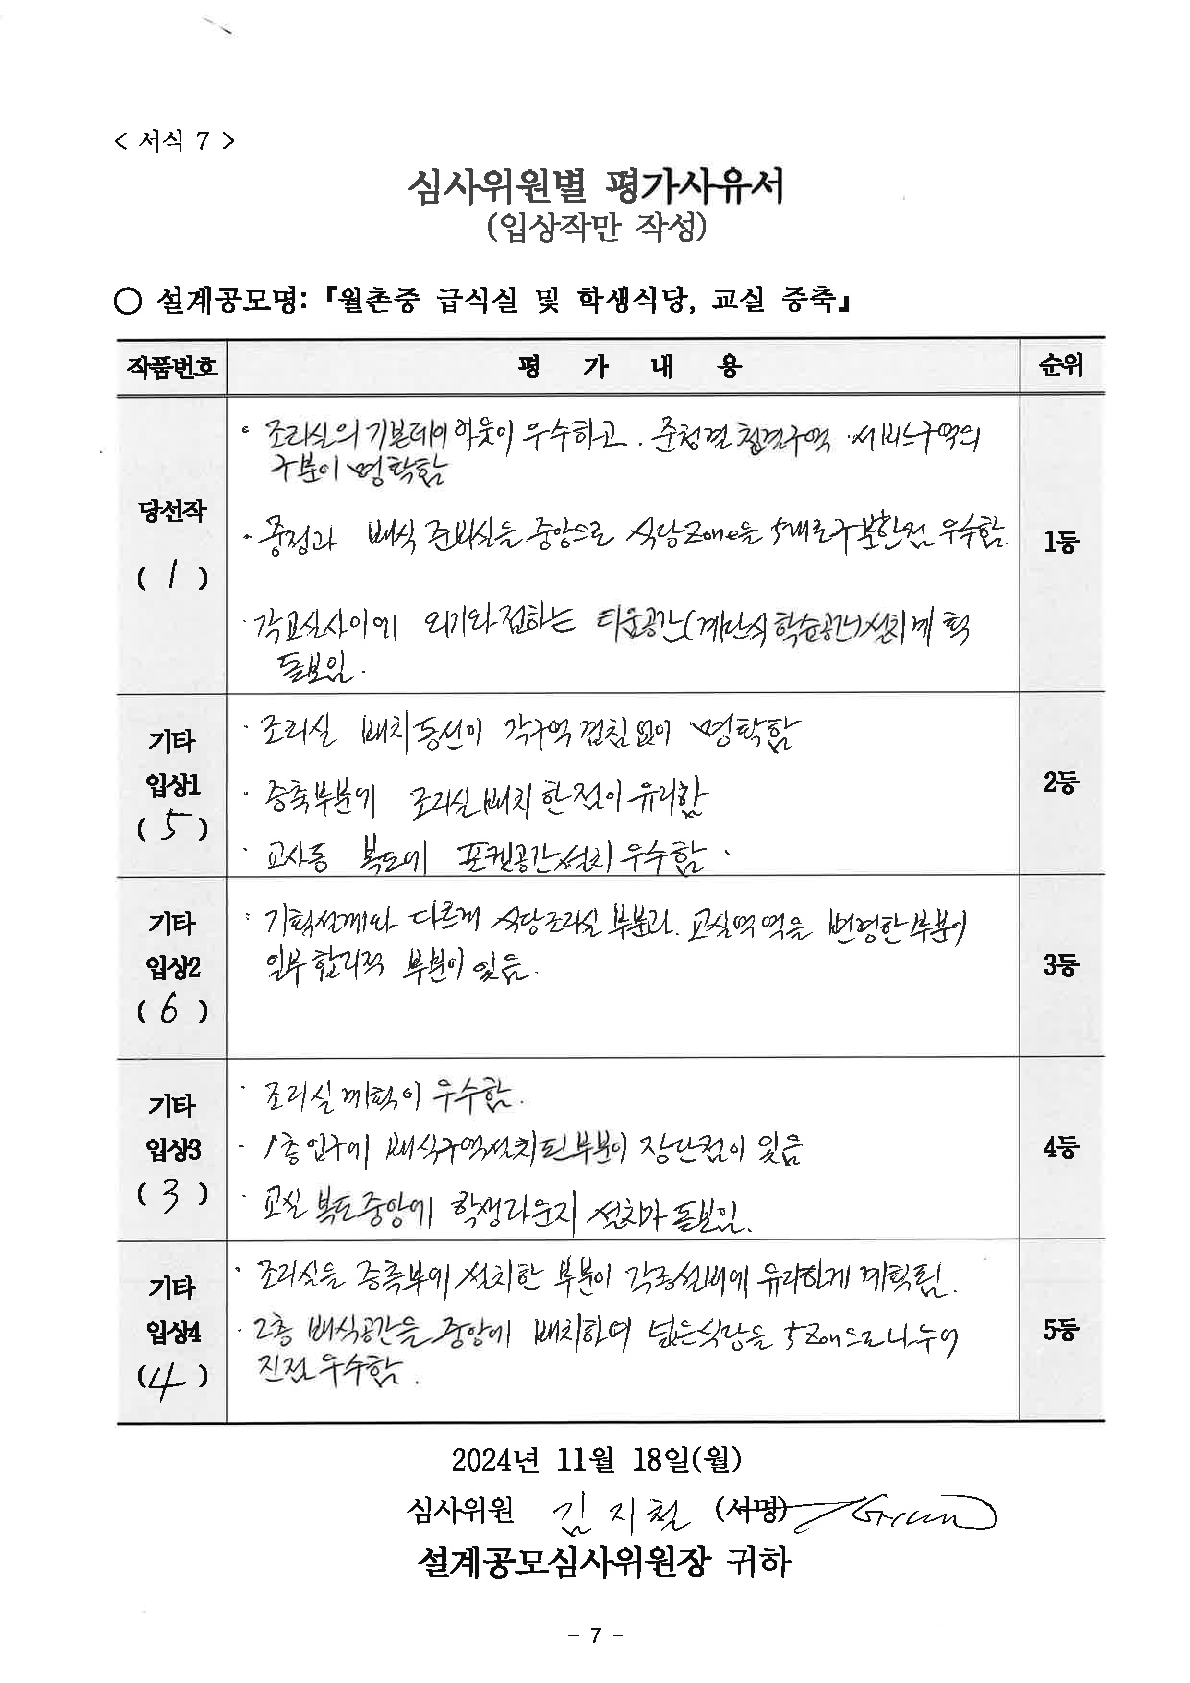 < 서식 7 >
심사위원별 평가사유서
(입상작만 작성)
○ 설계공모명: 『월촌중 급식실 및 학생식당, 교실 증축』
작품번호 평 가 내 용 순위
당선작
( 1 )
• 조리실의 기본레이아웃이 우수하고. 준청결 청결구역 서비스구역의
구분이 명확함
• 중정과 배식 준비실을 중앙으로 식당zone을 5개로구분한점 우수함.
· 각교실사이에 외기와접하는 타운공간(계단식학습공간)설치계획
돋보임.
1등
기타
입상1
( 5 )
· 조리실 배치동선이 각구역 겹침없이 명확함
· 증축부분에 조리실배치한점이 유리함
· 교사동 복도에 포켓공간설치 우수함.
2등
기타
입상2
( 6 )
· 기획설계와 다르게 식당조리실 부분과. 교실영역을 변경한부분이
일부합리적 부분이 있음.
3등
기타
입상3
( 3 )
· 조리실계획이 우수함.
· 1층입구에 배식구역설치된부분이 장단점이 있음
· 교실복도중앙에 학생라운지 설치가 돋보임.
4등
기타
입상4
( 4 )
· 조리실을 증축부에 설치한 부분이 각종설비에 유리하게 계획됨.
· 2층 배식공간을 중앙에 배치하여 넓은식당을 5zon으로나누어
진점우수함.
5등
2024년 11월 18일(월)
심사위원 김지철 (서명)
설계공모심사위원장 귀하
- 7 -